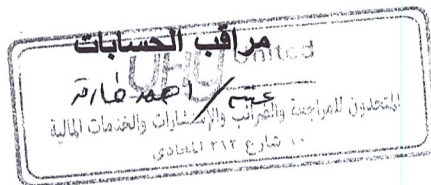 مراقب الحسابات
UHY United
عنه / احمد طارق
المتحدون للمراجعة والضرائب والإستشارات والخدمات المالية
١٠ شارع ٢١٢ المعادي